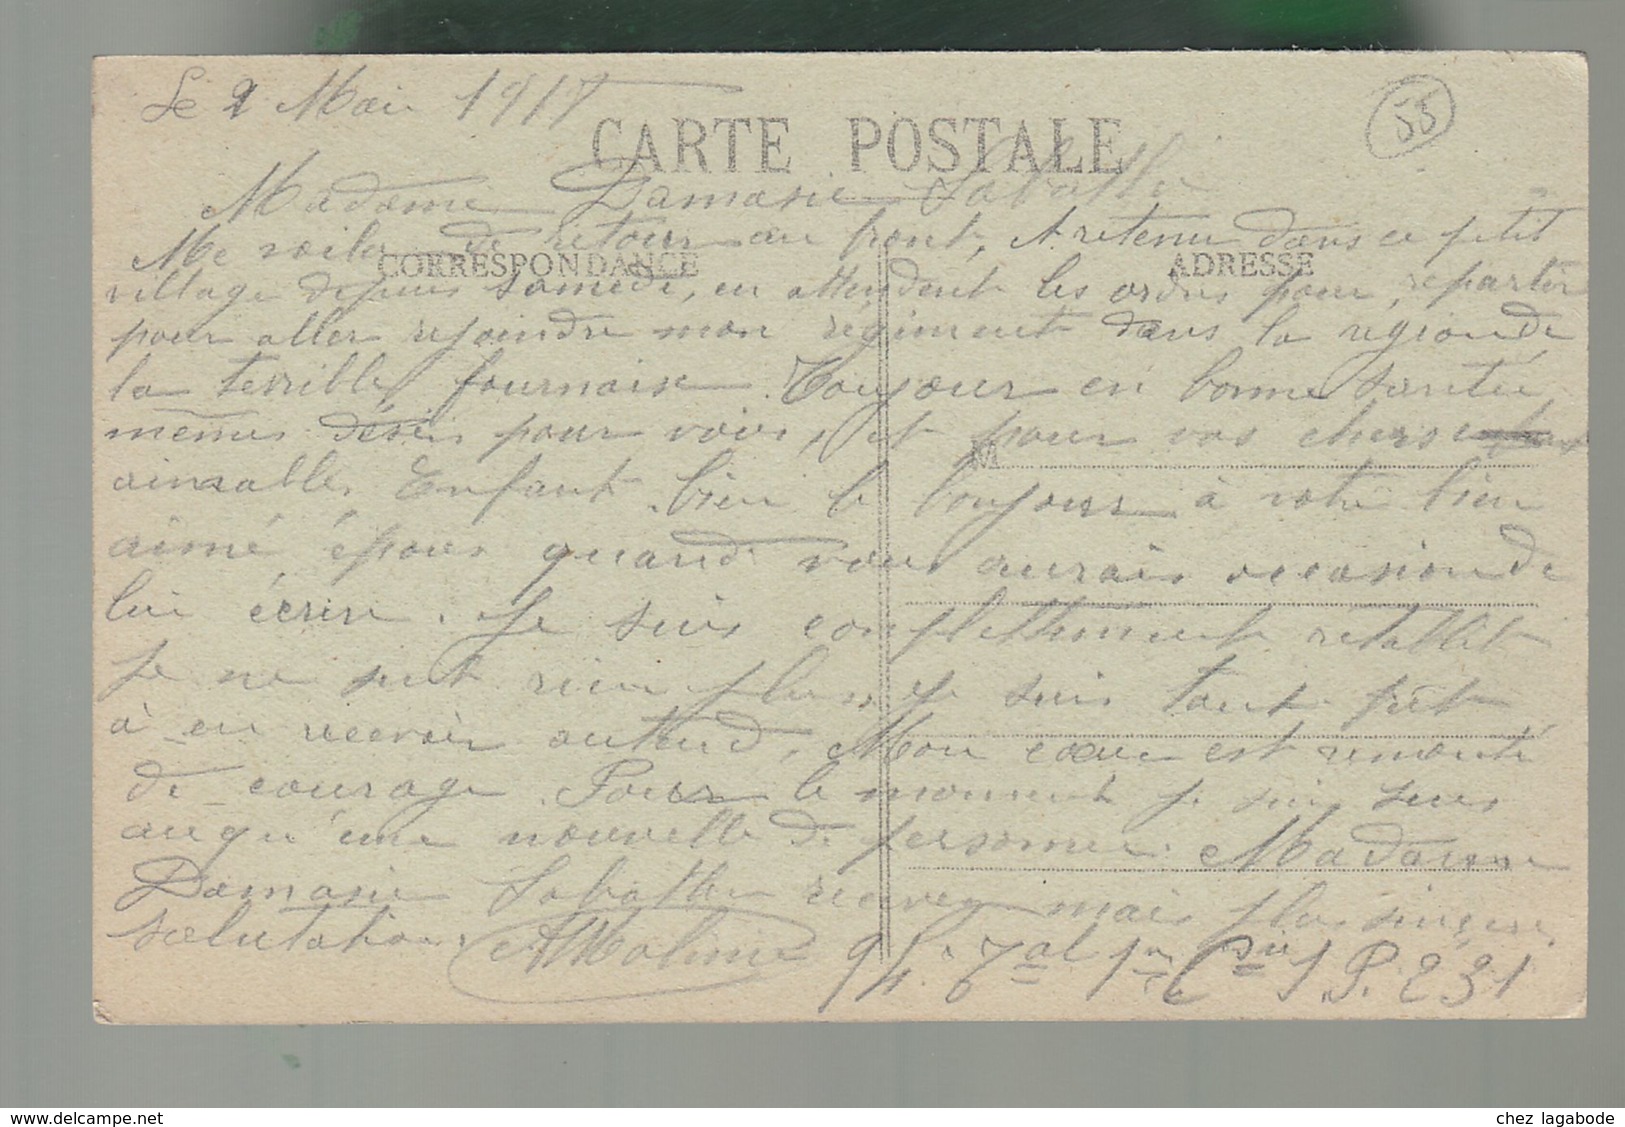 Le 2 Mai 1917
55
CARTE POSTALE
Madame Damasie Sabathe
Me voila de retour au front, A retenu dans ce petit
CORRESPONDANCE
ADRESSE
village depuis samedi, en attendent les ordres pour repartir
pour aller rejoindre mon régiment dans la région de
la terrible fournaise. Toujour en bonne santée
mêmes désirs pour vois, et pour vos chers
M
aimables Enfant. bien le bonjour à votre bien
aimé épous quand vous aurais occasion de
lui écrire. Je suis complettement retablit
Je ne sent rien plus, Je suis tout prêt
à en recevoir autend. Mon cœur est remonté
de courage. Pour le moment je suis sens
auqu'une nouvelle de personne. Madame
Damasie Sabathe recevez mais plus sincère
salutation.
chez lagabode